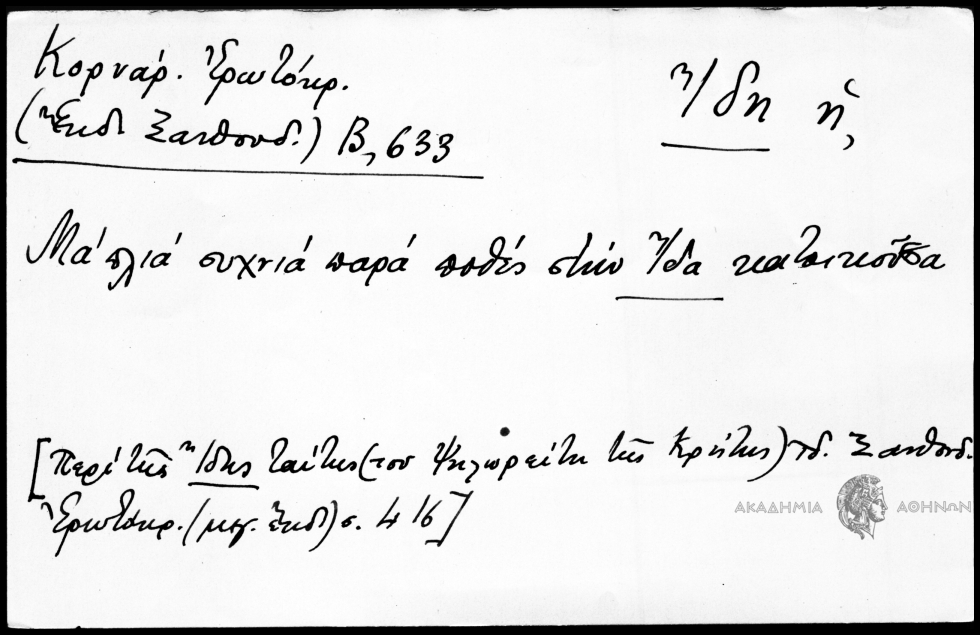 Κορνάρ. Ἐρωτόκρ.
(Ἔκδ Ξανθουδ.) Β, 633
Ἴδη ἡ,
Μά πλιά συχνιά παρά ποθές στήν Ἴδα κατοικοῦσα
[Περί τῆς Ἴδης ταύτης (του Ψηλωρείτη τῆς Κρήτης) ἰδ. Ξανθουδ.
Ἐρωτόκρ. (μεγ. ἔκδ) σ. 416]
ΑΚΑΔΗΜΙΑ ΑΘΗΝΩΝ